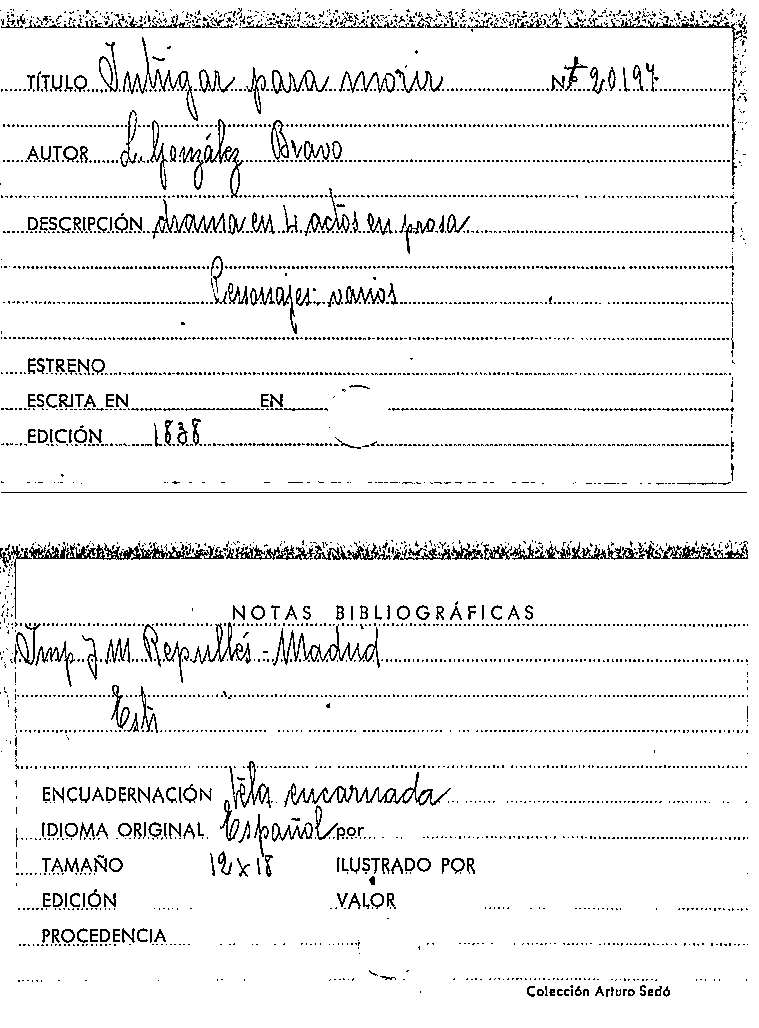 TÍTULO Intrigar para morir Nº 20194
AUTOR L. González Bravo
DESCRIPCIÓN drama en 4 actos en prosa
Personajes: varios
ESTRENO
ESCRITA EN EN
EDICIÓN 1838
NOTAS BIBLIOGRÁFICAS
Imp J M Repullés - Madrid
ENCUADERNACIÓN tela encarnada
IDIOMA ORIGINAL Español por
TAMAÑO 12 x 18 ILUSTRADO POR
EDICIÓN VALOR
PROCEDENCIA
Colección Arturo Sedó